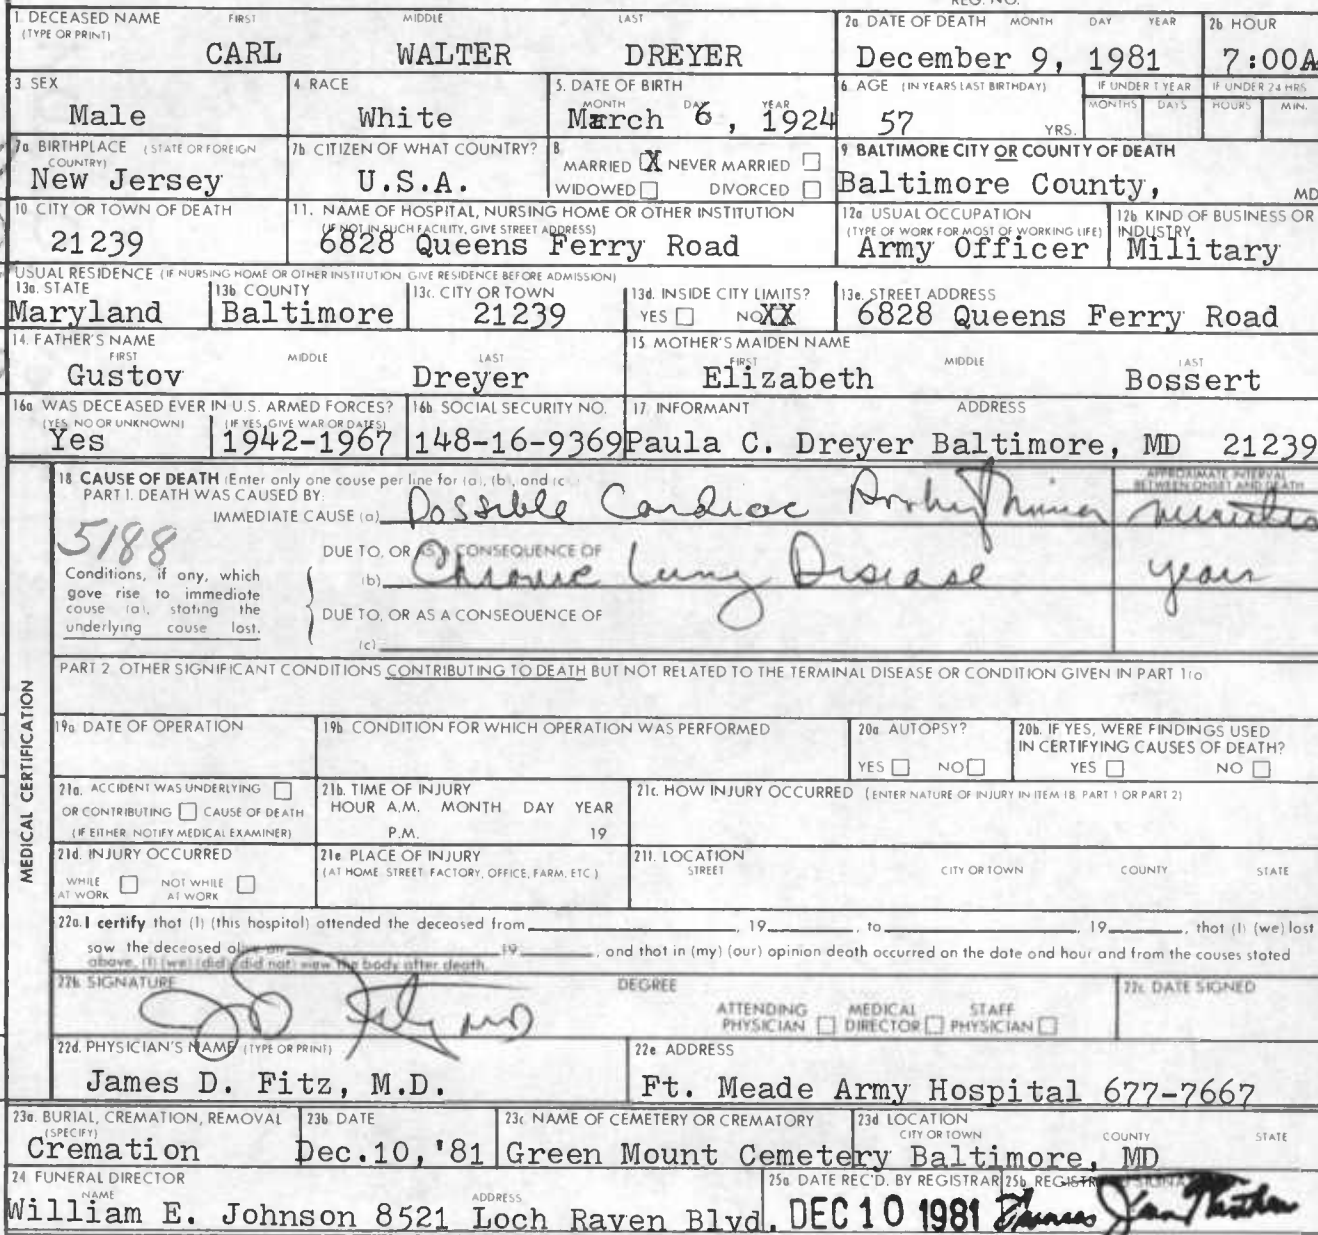 REG. NO.
1. DECEASED NAME (TYPE OR PRINT) FIRST MIDDLE LAST
CARL WALTER DREYER
2a DATE OF DEATH MONTH DAY YEAR
December 9, 1981
2b HOUR
7:00A
3 SEX
Male
4 RACE
White
5. DATE OF BIRTH
MONTH DAY YEAR
March 6, 1924
6 AGE (IN YEARS LAST BIRTHDAY)
57 YRS.
IF UNDER 1 YEAR
MONTHS DAYS
IF UNDER 24 HRS
HOURS MIN.
7a. BIRTHPLACE (STATE OR FOREIGN COUNTRY)
New Jersey
7b CITIZEN OF WHAT COUNTRY?
U.S.A.
8
MARRIED X NEVER MARRIED
WIDOWED DIVORCED
9 BALTIMORE CITY OR COUNTY OF DEATH
Baltimore County, MD
10 CITY OR TOWN OF DEATH
21239
11. NAME OF HOSPITAL, NURSING HOME OR OTHER INSTITUTION
(IF NOT IN SUCH FACILITY, GIVE STREET ADDRESS)
6828 Queens Ferry Road
12a USUAL OCCUPATION
(TYPE OF WORK FOR MOST OF WORKING LIFE)
Army Officer
12b KIND OF BUSINESS OR INDUSTRY
Military
USUAL RESIDENCE (IF NURSING HOME OR OTHER INSTITUTION GIVE RESIDENCE BEFORE ADMISSION)
13a. STATE
Maryland
13b COUNTY
Baltimore
13c. CITY OR TOWN
21239
13d. INSIDE CITY LIMITS?
YES NO XX
13e. STREET ADDRESS
6828 Queens Ferry Road
14. FATHER'S NAME
FIRST MIDDLE LAST
Gustov Dreyer
15 MOTHER'S MAIDEN NAME
FIRST MIDDLE LAST
Elizabeth Bossert
16a WAS DECEASED EVER IN U.S. ARMED FORCES?
(YES, NO OR UNKNOWN) (IF YES, GIVE WAR OR DATES)
Yes 1942-1967
16b SOCIAL SECURITY NO.
148-16-9369
17 INFORMANT ADDRESS
Paula C. Dreyer Baltimore, MD 21239
MEDICAL CERTIFICATION
18 CAUSE OF DEATH (Enter only one cause per line for (a), (b), and (c)
PART I. DEATH WAS CAUSED BY:
APPROXIMATE INTERVAL BETWEEN ONSET AND DEATH
IMMEDIATE CAUSE (a) Possible Cardiac Arrhythmia minutes
5188
DUE TO, OR AS A CONSEQUENCE OF
(b) Chronic Lung Disease years
Conditions, if any, which
gave rise to immediate
cause (a), stating the
underlying cause last.
DUE TO, OR AS A CONSEQUENCE OF
(c)
PART 2 OTHER SIGNIFICANT CONDITIONS CONTRIBUTING TO DEATH BUT NOT RELATED TO THE TERMINAL DISEASE OR CONDITION GIVEN IN PART 1(a)
19a DATE OF OPERATION
19b CONDITION FOR WHICH OPERATION WAS PERFORMED
20a AUTOPSY?
YES NO
20b. IF YES, WERE FINDINGS USED
IN CERTIFYING CAUSES OF DEATH?
YES NO
21a. ACCIDENT WAS UNDERLYING
OR CONTRIBUTING CAUSE OF DEATH
(IF EITHER NOTIFY MEDICAL EXAMINER)
21b. TIME OF INJURY
HOUR A.M. MONTH DAY YEAR
P.M. 19
21c. HOW INJURY OCCURRED (ENTER NATURE OF INJURY IN ITEM 18, PART 1 OR PART 2)
21d. INJURY OCCURRED
WHILE AT WORK NOT WHILE AT WORK
21e PLACE OF INJURY
(AT HOME STREET FACTORY, OFFICE, FARM, ETC)
21f. LOCATION
STREET CITY OR TOWN COUNTY STATE
22a. I certify that (I) (this hospital) attended the deceased from , 19 , to , 19 , that (I) (we) last
saw the deceased alive on 19 , and that in (my) (our) opinion death occurred on the date and hour and from the causes stated
above, (I) (we) (did) (did not) view the body after death.
22b. SIGNATURE
DEGREE
ATTENDING PHYSICIAN MEDICAL DIRECTOR STAFF PHYSICIAN
22c. DATE SIGNED
22d. PHYSICIAN'S NAME (TYPE OR PRINT)
James D. Fitz, M.D.
22e ADDRESS
Ft. Meade Army Hospital 677-7667
23a. BURIAL, CREMATION, REMOVAL (SPECIFY)
Cremation
23b DATE
Dec.10,'81
23c NAME OF CEMETERY OR CREMATORY
Green Mount Cemetery
23d LOCATION
CITY OR TOWN COUNTY STATE
Baltimore, MD
24 FUNERAL DIRECTOR
NAME ADDRESS
William E. Johnson 8521 Loch Raven Blvd.
25a DATE REC'D. BY REGISTRAR
DEC 10 1981
25b. REGISTRAR'S SIGNATURE